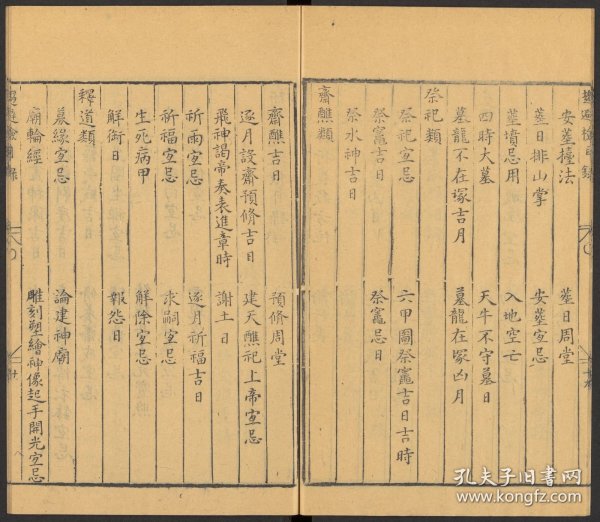 安葬擡法 葬日周堂
葬日排山掌 安葬宜忌
葬墳忌用 入地空亡
四時大墓 天牛不守墓日
墓龍不在塚吉月 墓龍在塚凶月
祭祀類
祭祀宜忌 六甲圖祭竈吉日吉時
祭竈吉日 祭竈忌日
祭水神吉日
齋醮類
齋醮吉日 預脩周堂
逐月設齋預脩吉日 建天醮祀上帝宜忌
飛神謁帝奏表進章時 謝土日
祈雨宜忌 逐月祈福吉日
祈福宜忌 求嗣宜忌
生死病甲 解除宜忌
解銜日 報怨日
釋道類
募緣宜忌 論建神廟
廟輪經 雕刻塑繪神像起手開光宜忌
孔夫子旧书网
www.kongfz.com